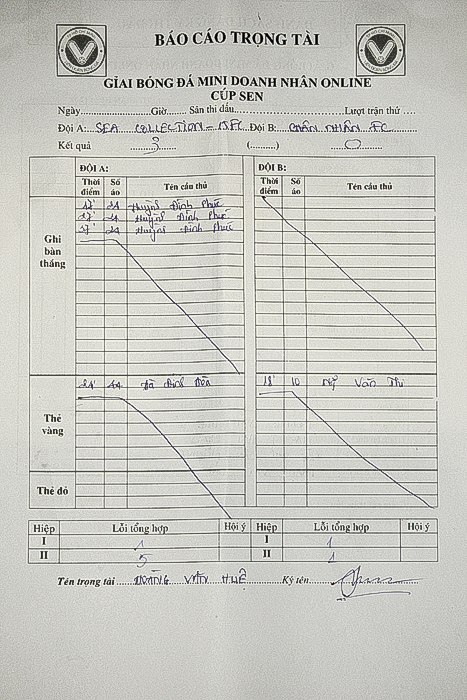 BÁO CÁO TRỌNG TÀI
GIẢI BÓNG ĐÁ MINI DOANH NHÂN ONLINE
CÚP SEN
Ngày.......... Giờ....... Sân thi đấu.......... Lượt trận thứ ....
Đội A: SEA COLLECTION - Đội B: CHÂN NHÂN FC
Kết quả 3 (..........) 0
ĐỘI A: ĐỘI B:
Thời điểm Số áo Tên cầu thủ Thời điểm Số áo Tên cầu thủ
Ghi bàn thắng
Huỳnh Đình Phúc
Huỳnh Đình Phúc
Huỳnh Đình Phúc
Thẻ vàng
18' 10 Văn Thi
Thẻ đỏ
Hiệp Lỗi tổng hợp Hội ý Hiệp Lỗi tổng hợp Hội ý
I 1 I 1
II 5 II 1
Tên trọng tài HOÀNG VĂN HUỆ Ký tên